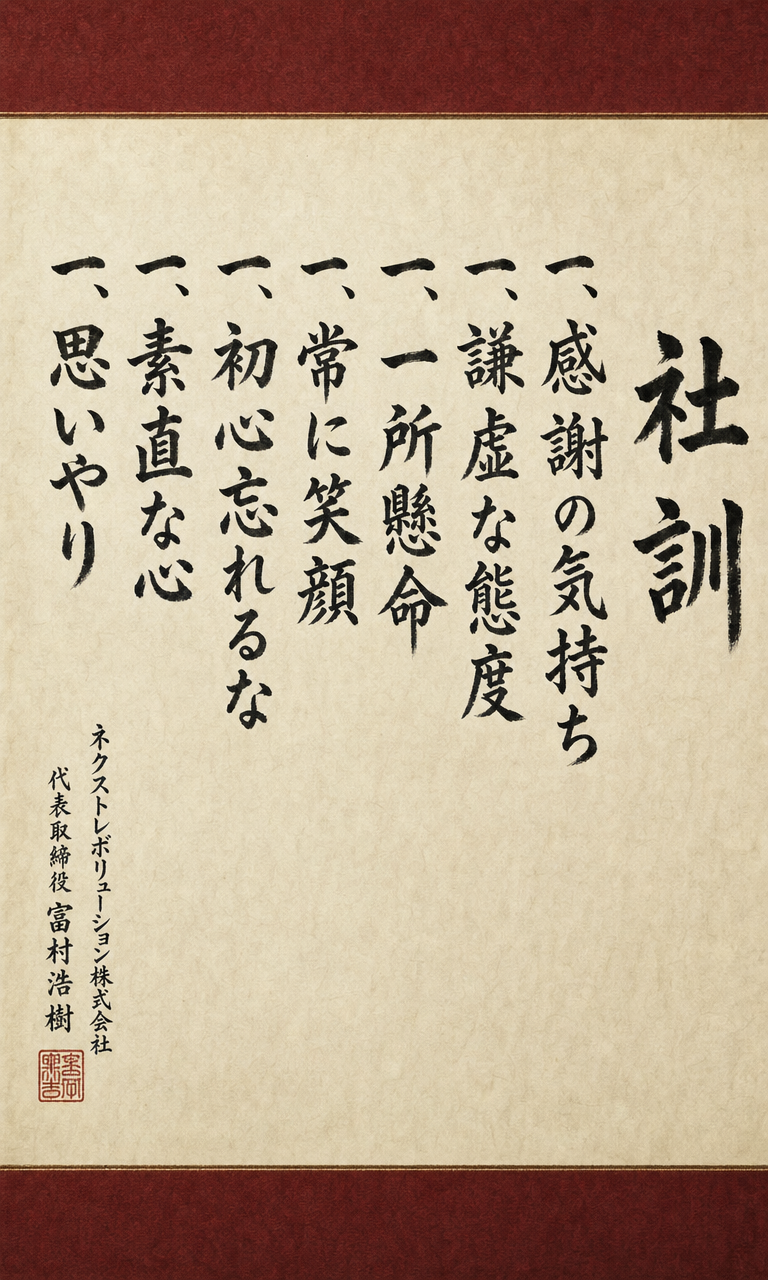 社訓
一、感謝の気持ち
一、謙虚な態度
一、一所懸命
一、常に笑顔
一、初心忘れるな
一、素直な心
一、思いやり
ネクストレボリューション株式会社
代表取締役 富村浩樹